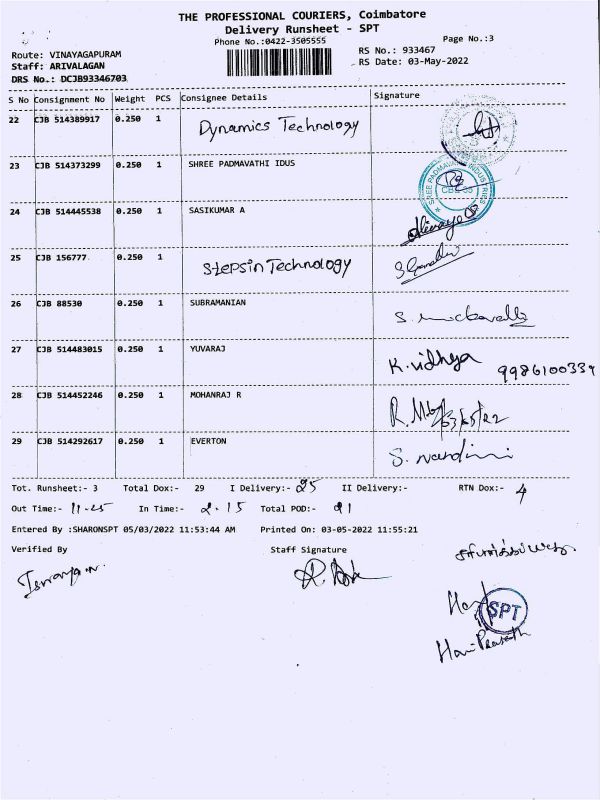 THE PROFESSIONAL COURIERS, Coimbatore
Delivery Runsheet - SPT
Phone No.:0422-3505555
Page No.:3
Route: VINAYAGAPURAM
RS No.: 933467
Staff: ARIVALAGAN
RS Date: 03-May-2022
DRS No.: DCJB93346703
S No Consignment No Weight PCS Consignee Details Signature
22 CJB 514389917 0.250 1 Dynamics Technology
23 CJB 514373299 0.250 1 SHREE PADMAVATHI IDUS
SREE PADMAVATHI INDUSTRIES
24 CJB 514445538 0.250 1 SASIKUMAR A
25 CJB 156777 0.250 1 StepsinTechnology
26 CJB 88530 0.250 1 SUBRAMANIAN
27 CJB 514483015 0.250 1 YUVARAJ K. vidhya 9986100334
28 CJB 514452246 0.250 1 MOHANRAJ R
29 CJB 514292617 0.250 1 EVERTON S. nandini
Tot. Runsheet:- 3 Total Dox:- 29 I Delivery:- 25 II Delivery:- RTN Dox:- 4
Out Time:- 11-25 In Time:- 2-15 Total POD:- 21
Entered By :SHARONSPT 05/03/2022 11:53:44 AM Printed On: 03-05-2022 11:55:21
Verified By Staff Signature
SPT
Hari Prasath